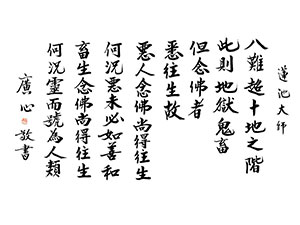 蓮池大师
八難超十地之階
此則地獄鬼畜
但念佛者
悉往生故
惡人念佛尚得往生
何況惡未必如善和
畜生念佛尚得往生
何況靈而號為人類
廣心敬書